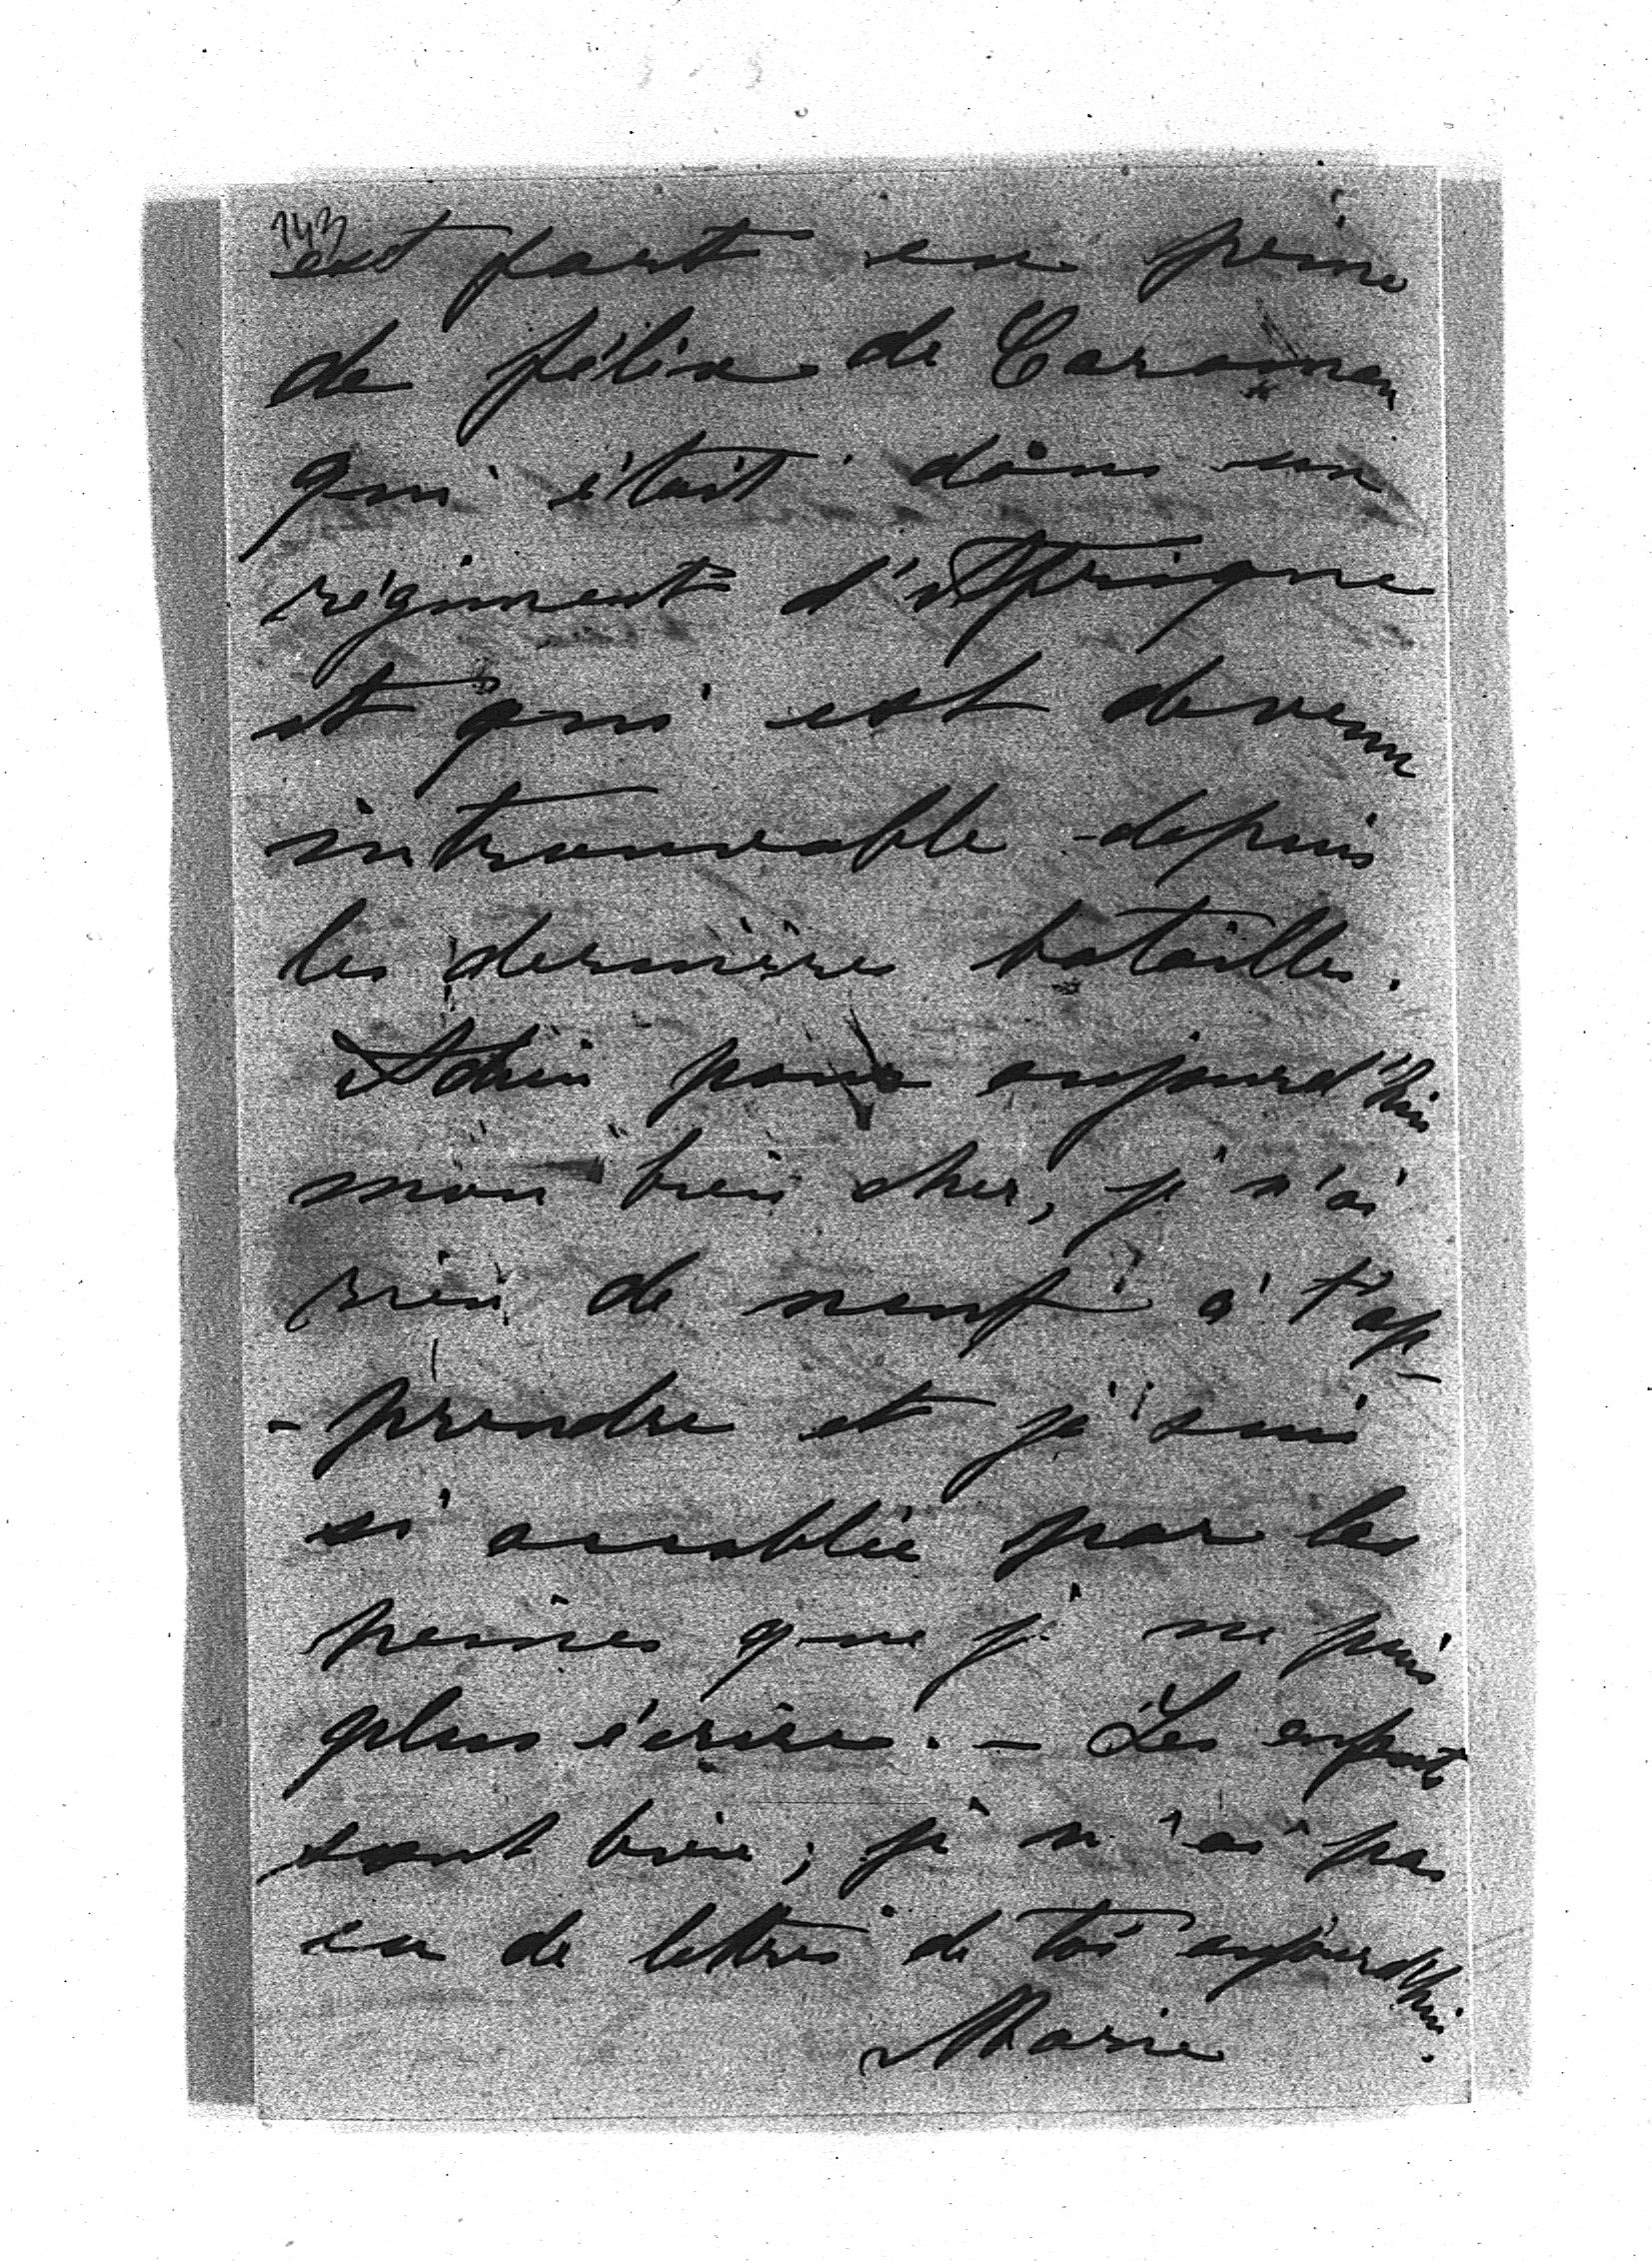 143
est fort en peine
de félix de Caraman
qui était dans un
régiment d'Afrique
et qui est devenu
introuvable depuis
les dernières batailles.
Adieu pour aujourd'hui
mon bien cher, je n'ai
rien de neuf à t'ap-
-prendre et je suis
si accablée par les
peines que je ne puis
plus écrire. - Les enfants
sont bien; je n'ai pas
eu de lettres de toi aujourd'hui.
Marie